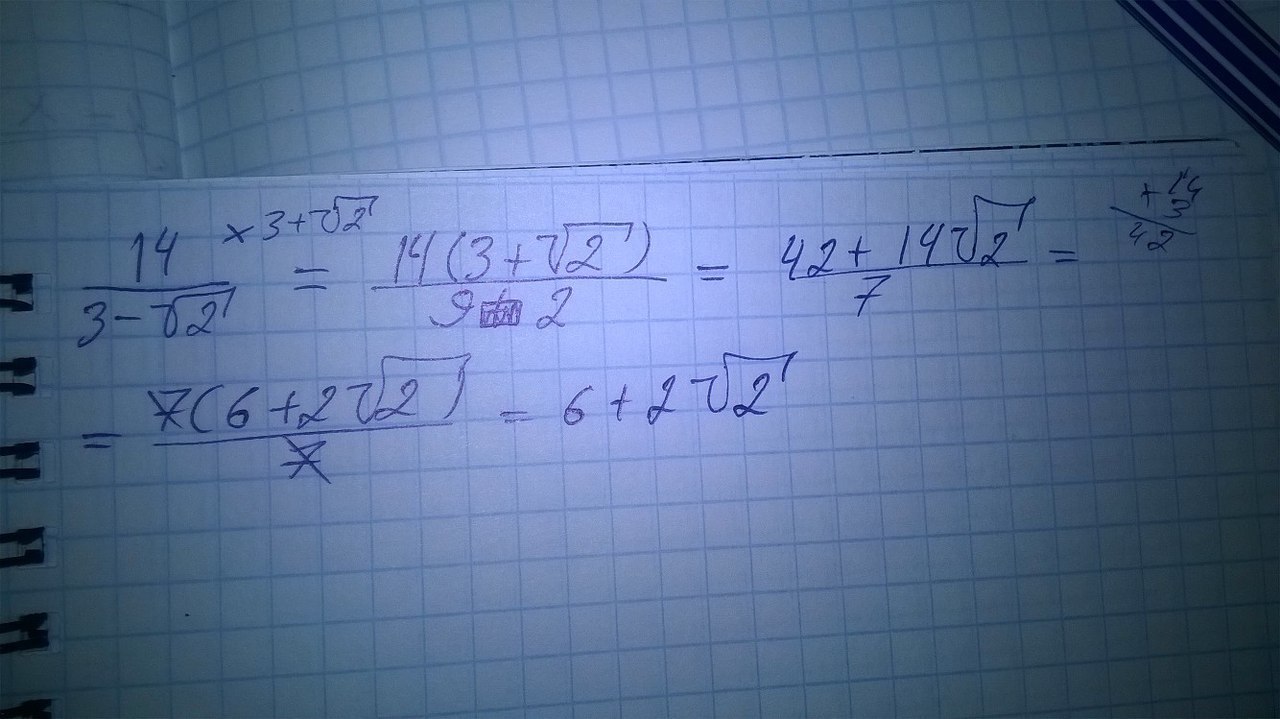 14/(3-√2) ×3+√2 = 14(3+√2)/(9 2) = (42+14√2)/7 =
+14
3
42
= 7(6+2√2)/7 = 6+2√2